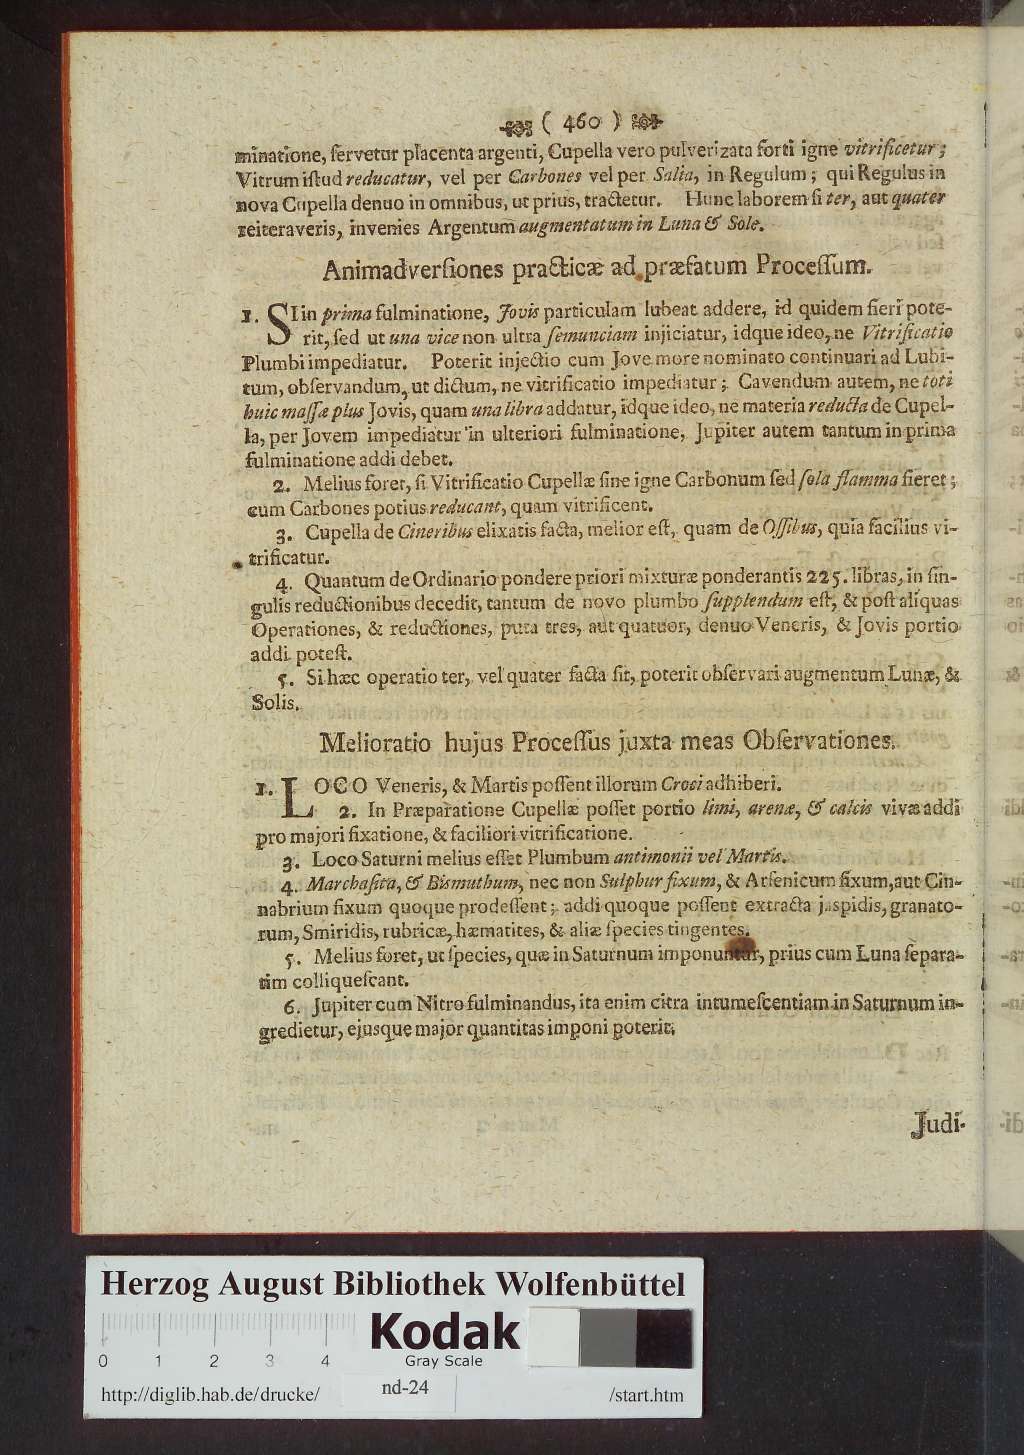 ( 460 )
minatione, ſervetur placenta argenti, Cupella vero pulverizata forti igne vitrificetur;
Vitrum iſtud reducatur, vel per Carbones vel per Salia, in Regulum; qui Regulus in
nova Cupella denuo in omnibus, ut prius, tractetur. Hunc laborem ſi ter, aut quater
reiteraveris, invenies Argentum augmentatum in Luna & Sole.
Animadverſiones practicæ ad præfatum Proceſſum.
1. SI in prima fulminatione, Jovis particulam lubeat addere, id quidem fieri pote-
rit, ſed ut una vice non ultra ſemunciam injiciatur, idque ideo, ne Vitrificatio
Plumbi impediatur. Poterit injectio cum Jove more nominato continuari ad Lubi-
tum, obſervandum, ut dictum, ne vitrificatio impediatur; Cavendum autem, ne toti
huic maſſæ plus Jovis, quam una libra addatur, idque ideo, ne materia reducta de Cupel-
la, per Jovem impediatur in ulteriori fulminatione, Jupiter autem tantum in prima
fulminatione addi debet.
2. Melius foret, ſi Vitrificatio Cupellæ ſine igne Carbonum ſed ſola flamma fieret;
cum Carbones potius reducant, quam vitrificent.
3. Cupella de Cineribus elixatis facta, melior eſt, quam de Oſſibus, quia facilius vi-
trificatur.
4. Quantum de Ordinario pondere priori mixturæ ponderantis 225. libras, in ſin-
gulis reductionibus decedit, tantum de novo plumbo ſupplendum eſt, & poſt aliquas
Operationes, & reductiones, puta tres, aut quatuor, denuo Veneris, & Jovis portio
addi poteſt.
5. Si hæc operatio ter, vel quater facta ſit, poterit obſervari augmentum Lunæ, &
Solis.
Melioratio hujus Proceſſus juxta meas Obſervationes.
1. LOCO Veneris, & Martis poſſent illorum Croci adhiberi.
2. In Præparatione Cupellæ poſſet portio limi, arenæ, & calcis vivæ addi
pro majori fixatione, & faciliori vitrificatione.
3. Loco Saturni melius eſſet Plumbum antimonii vel Martis.
4. Marchaſita, & Bismuthum, nec non Sulphur fixum, & Arſenicum fixum, aut Cin-
nabrium fixum quoque prodeſſent; addi quoque poſſent extracta jaspidis, granato-
rum, Smiridis, rubricæ, hæmatites, & aliæ ſpecies tingentes.
5. Melius foret, ut ſpecies, quæ in Saturnum imponuntur, prius cum Luna ſepara-
tim colliqueſcant.
6. Jupiter cum Nitro fulminandus, ita enim citra intumeſcentiam in Saturnum in-
gredietur, ejusque major quantitas imponi poterit.
Judi-
Herzog August Bibliothek Wolfenbüttel
Kodak
Gray Scale
0 1 2 3 4
http://diglib.hab.de/drucke/ nd-24 /start.htm